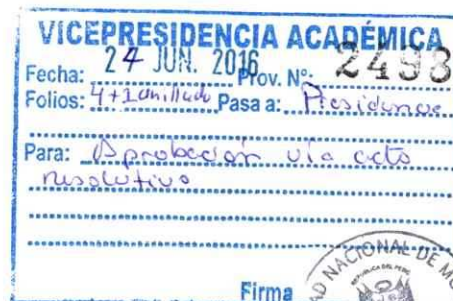 VICEPRESIDENCIA ACADÉMICA
Fecha: 24 JUN. 2016 Prov. Nº: 2498
Folios: 4+1anillado Pasa a: Presidencia
Para: Aprobación vía acto
resolutivo
Firma
AD NACIONAL DE MO
REPUBLICA DEL PERÚ